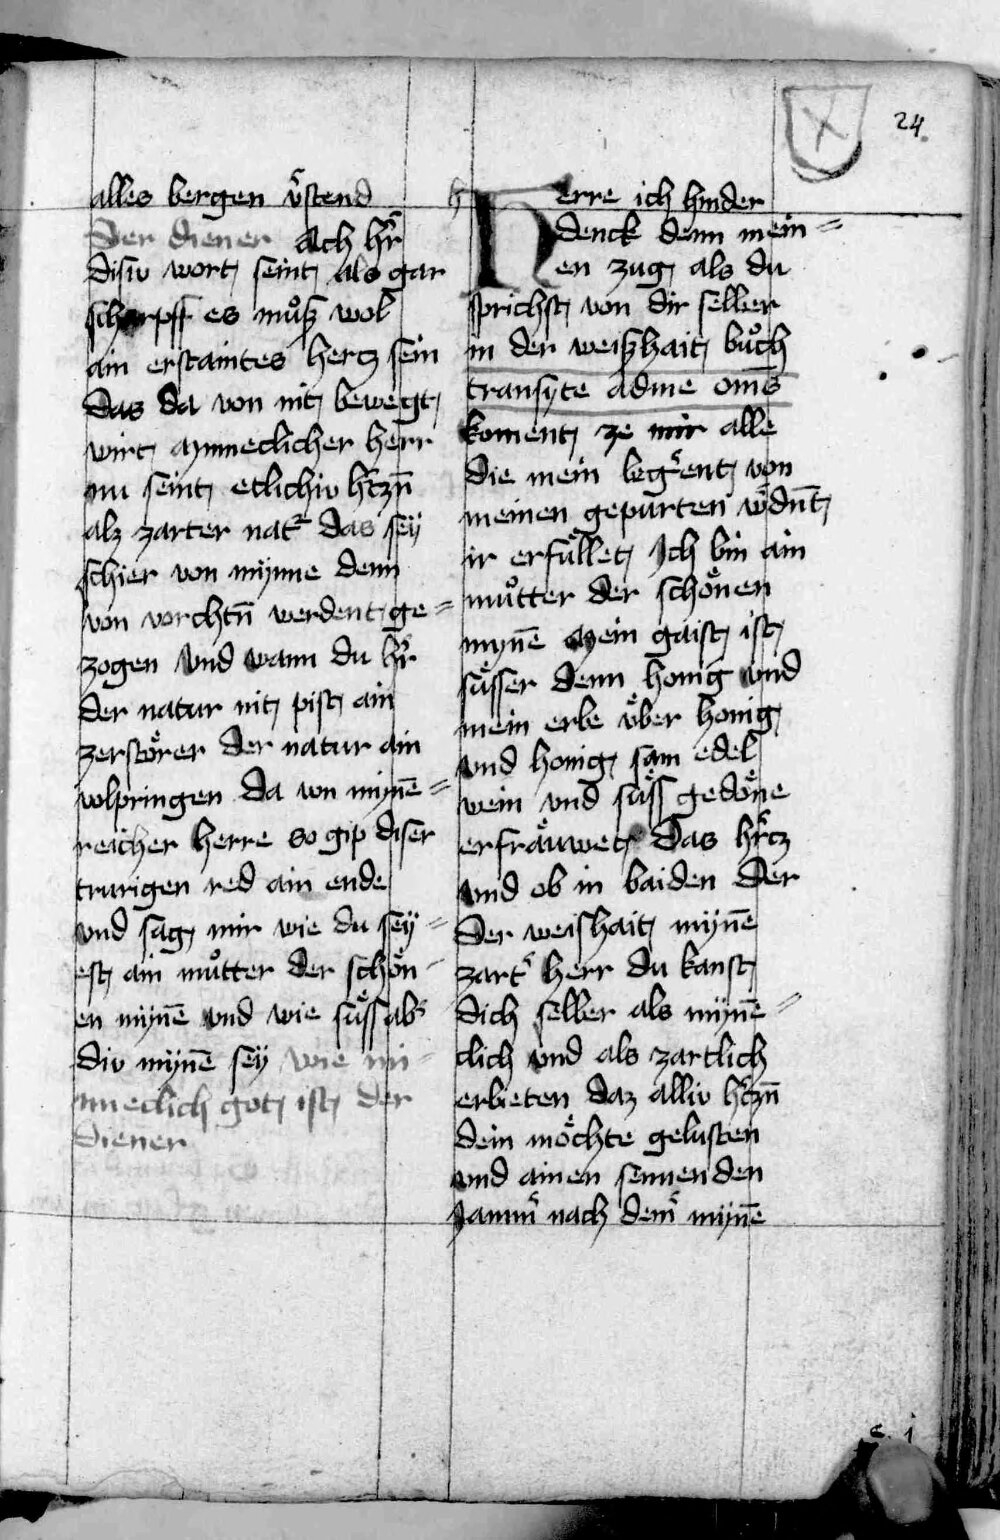 24
alles bergen v̓stend
Der diener Ach hr̄
disiv wort seint als gar
scharpff es muͦsz wol
ain erstaintes hertz sein
Das da von nit bewegt
wirt mynneclicher herr
nu seint etlichiv hr̓czn̄
alz zarter nat̓ das sey
schier von mynne denn
von vorchtn̄ werdent ge=
zogen vnd wann du hr̄
der natur nit pist ain
zerstoͤrer der natur ain
volpringen da von mynē=
reicher herre so gip diser
trurigen red ain ende
vnd sag mir wie du sey=
est ain muͦtter der schoͤn-
en mynē vnd wie suͤss ab̓
div mynē sey wie mi-
nneclich got ist der
diener
h erre ich hinder
denck denn mein=
en zug als du
sprichst von dir selber
in der weiszhait buͦch
transyte adme om̄s
koment ze mir alle
die mein beg̓ent von
meinen gepurten w̓dn̄t
ir erfuͤllet Ich bin ain
muͦtter der schoͤnen
mynē Mein gaist ist
suͤsser denn honig vnd
mein erbe vͤber honig
vnd honig sam edel
wein vnd suͤss gedoͤne
erfraͤuwet Das hr̓cz
vnd ob in baiden Der
Der weishait mynē
zart̓ herr du kanst
dich selber als mynē=
clich vnd als zartlich
erbieten daz alliv hr̓czn̄
dein moͤchte gelusten
vnd ainen sennenden
Jamm̓ nach dein̓ mynē
c. j